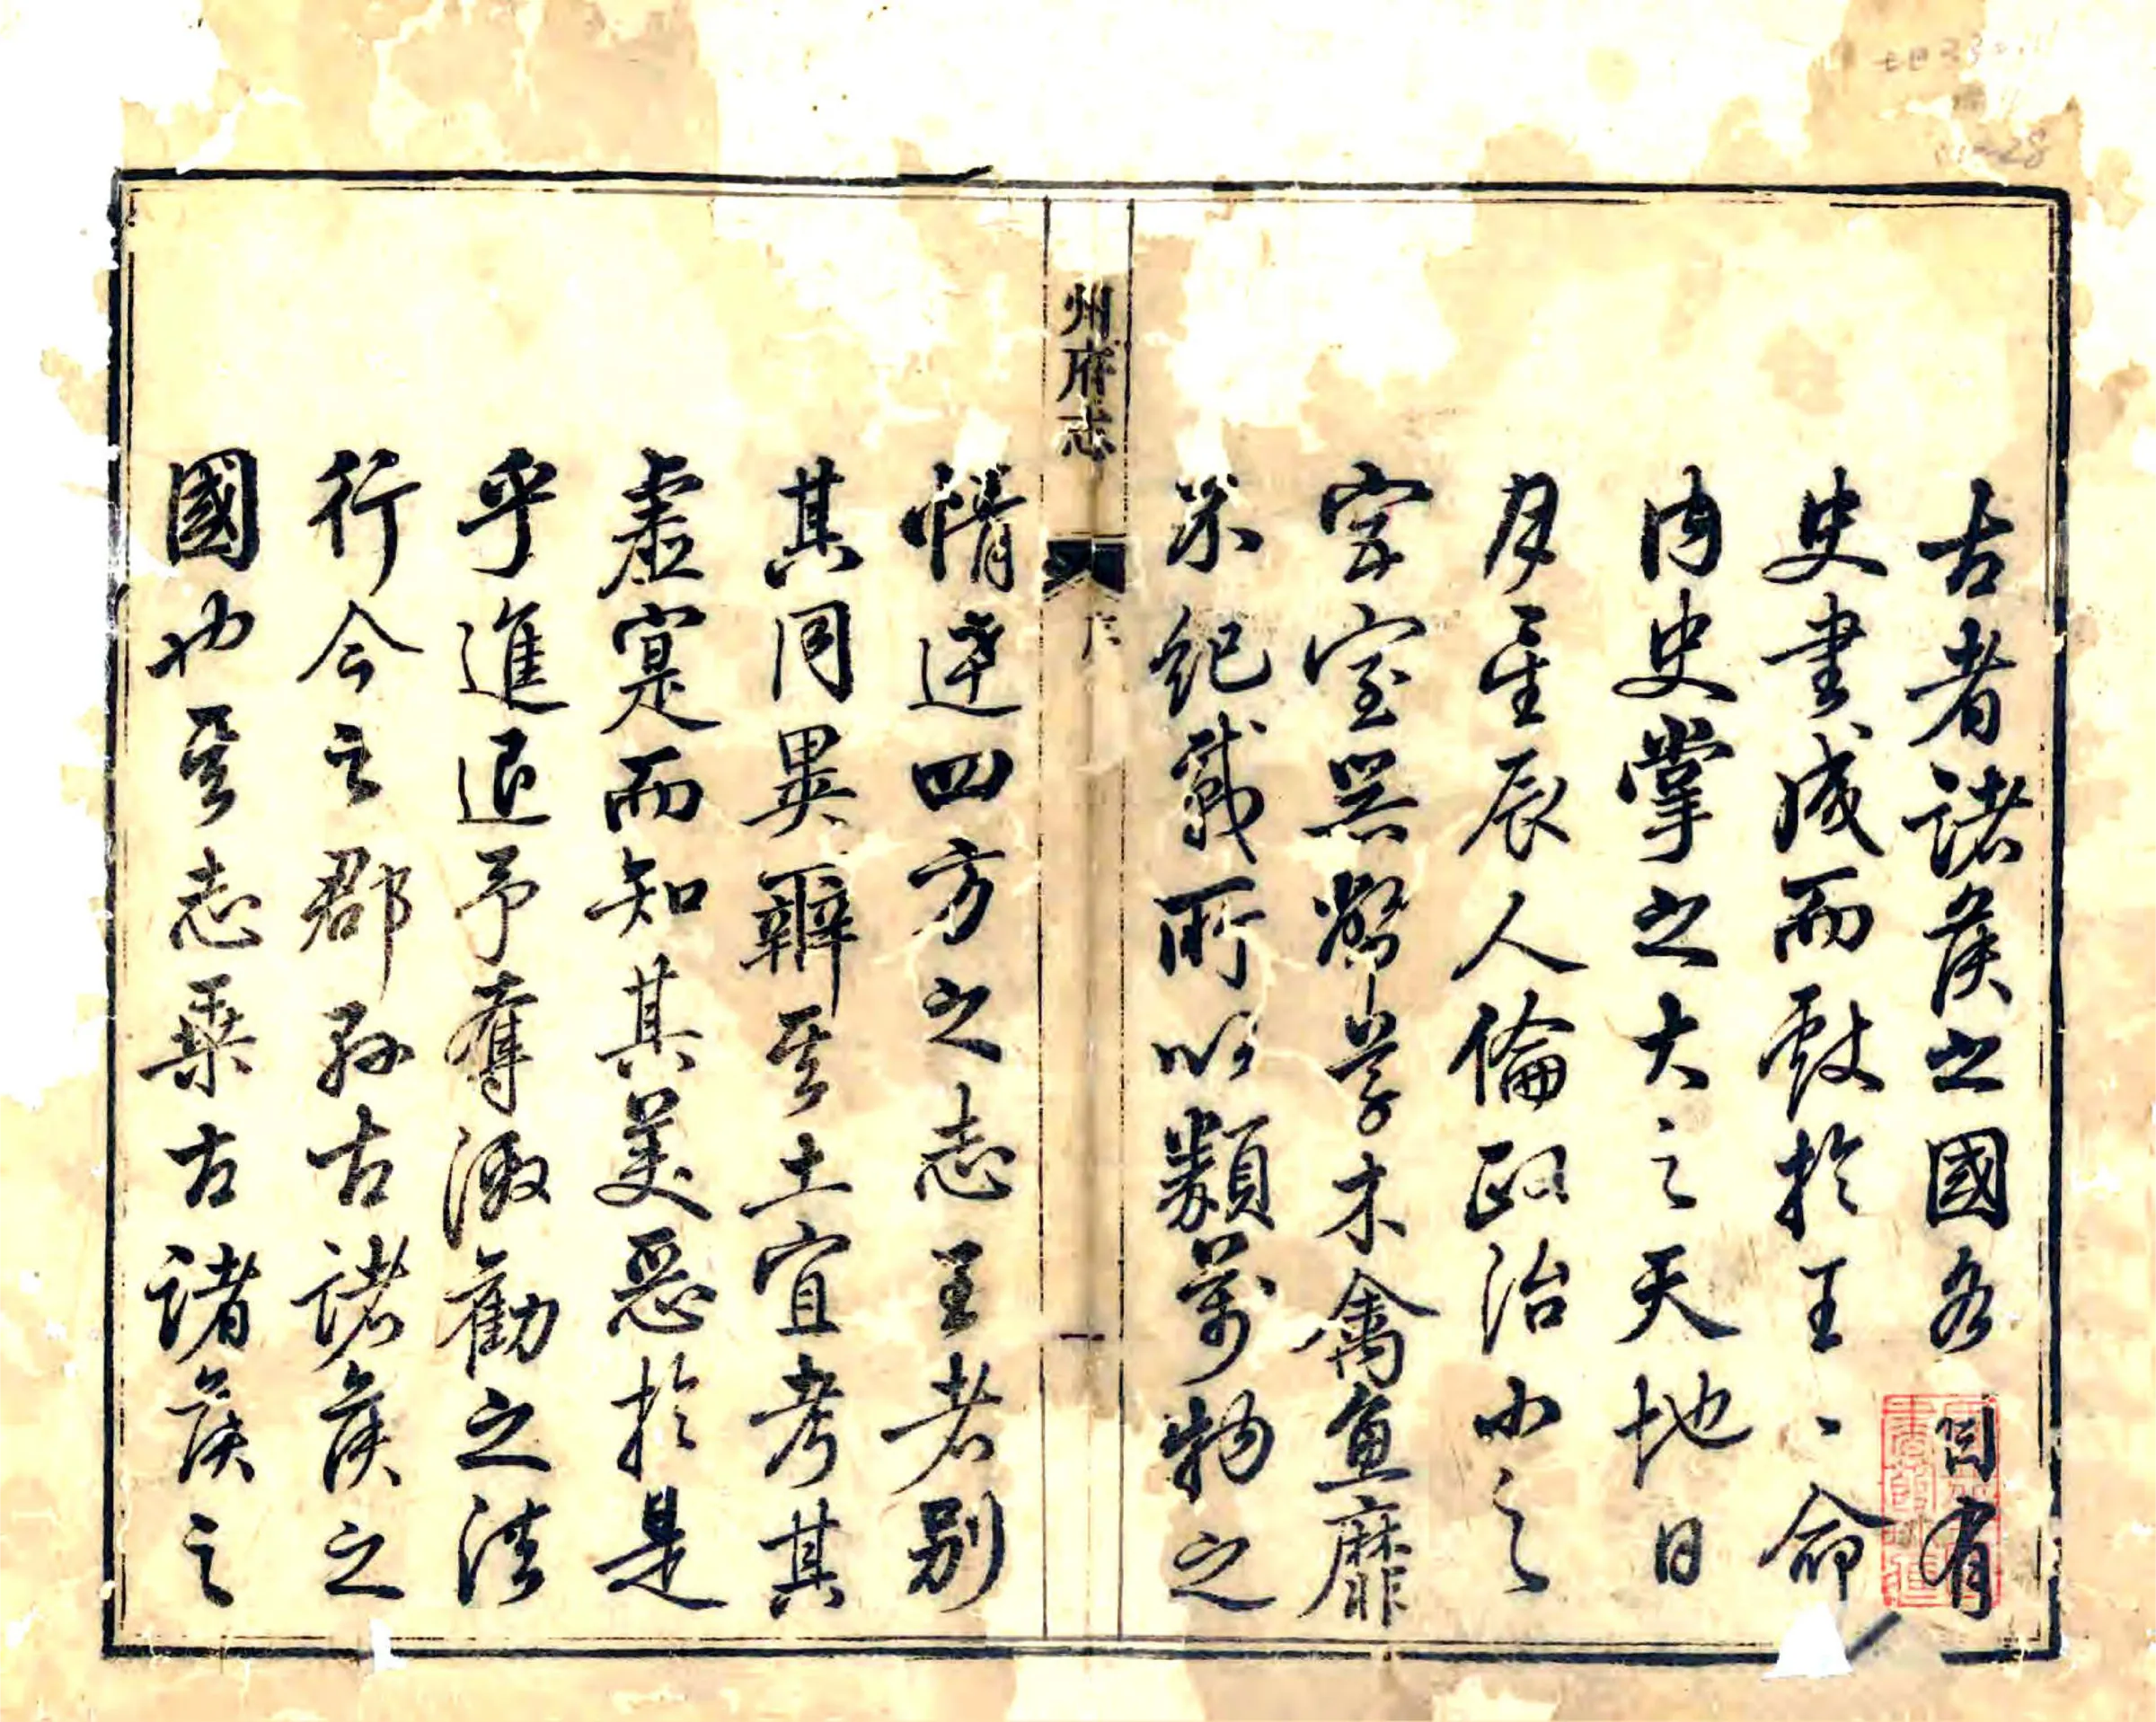 古者諸侯之國各自有
史書成而獻於王王命
内史掌之大之天地日
月星辰人倫政治小之
宮室器幣草木禽魚靡
不紀載所以類萬物之
情達四方之志王者別
其同異辯其土宜考其
虛寔而知其美惡於是
乎進退予奪激勸之法
行今之郡孫古諸侯之
國也其志乘古諸侯之
州府志
序
一